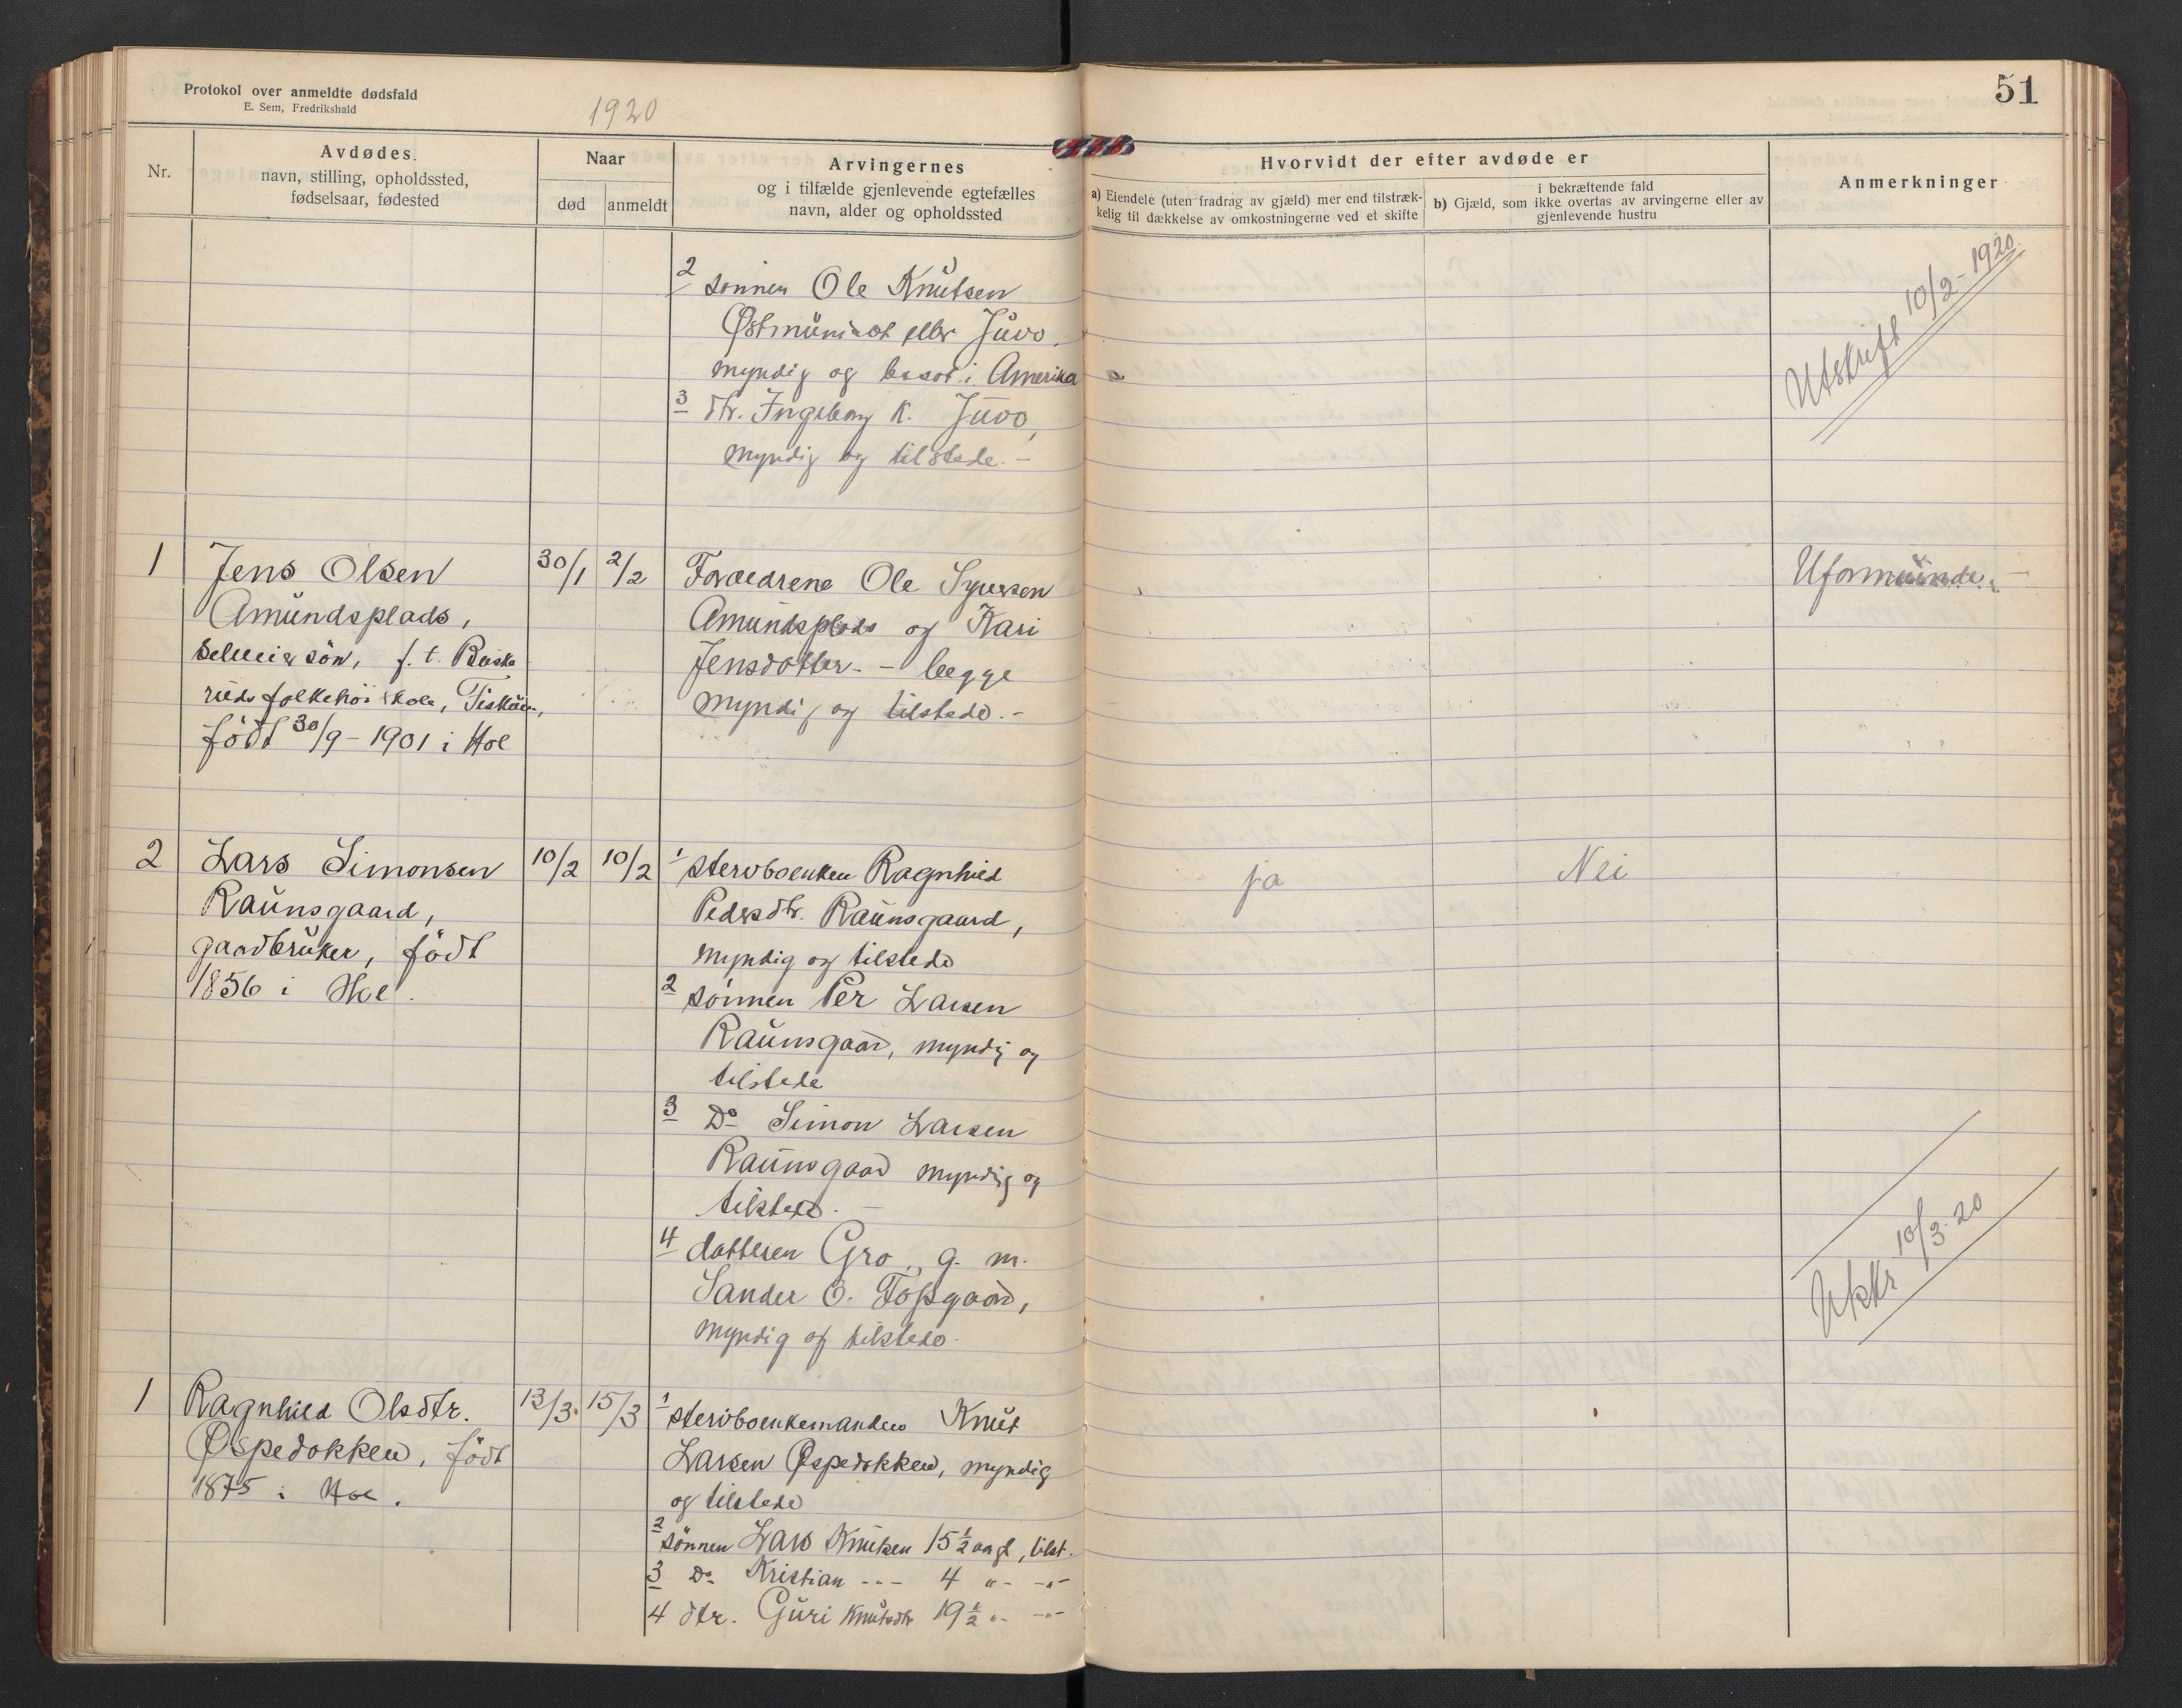 Protokol over anmeldte dødsfald
E. Sem, Fredrikshald
1920
51
Nr.
Avdødes
navn, stilling, opholdssted,
fødselsaar, fødested
Naar
død
anmeldt
Arvingernes
og i tilfælde gjenlevende egtefælles
navn, alder og opholdssted
Hvorvidt der efter avdøde er
a) Eiendele (uten fradrag av gjæld) mer end tilstræk-
kelig til dækkelse av omkostningerne ved et skifte
i bekræftende fald
b) Gjæld, som ikke overtas av arvingerne eller av
gjenlevende hustru
Anmerkninger
2 sønnen Ole Knutsen
eller Juvo,
myndig og bosat i Amerika
3 dtr. Ingeborg K. Juvo,
myndig og tilstede. -
Utskrift 10/2 - 1920.
1
Jens Olsen
Amundsplads,
selveiersøn, f. t. Buske
ruds folkehöiskole,
född 30/9 - 1901 i Hol
30/1
2/2
Foreldrene Ole Syversen
Amundsplads og Kari
Jensdotter - begge
myndig og tilstede. -
Uformuende. -
2
Lars Simonsen
Raunsgaard,
gaardbruker, född
1856 i Hol.
10/2
10/2
1 stervboenken Ragnhild
Pedersdtr. Raunsgaard,
myndig og tilstede
2 sönnen Per Larsen
Raunsgaard, myndig og
tilstede
3 Do Simon Larsen
Raunsgaard myndig og
tilstede. -
4 datteren Gro, g. m.
Sander O. Tofsgaard,
myndig og tilstede.
ja
Nei
Utskr 10/3-20
1
Ragnhild Olsdtr.
Øspedokken, född
1875 i Hol.
13/3
15/3
1 stervboenkemanden Knut
Larsen Øspedokken, myndig
og tilstede
2 sönnen Lars Knutsen 15 1/2 aar gl, tilst.
3 Do Kristian -"- 4 "- -"-
4 dtr. Guri Knutsdtr 19 1/2 "- -"-